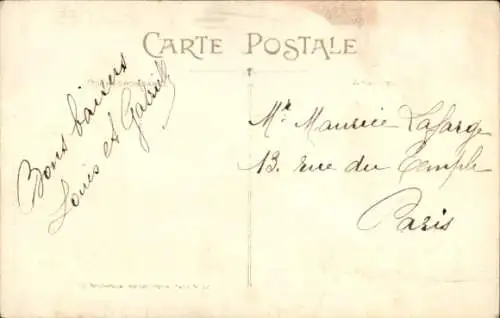 CARTE POSTALE
Bons baisers
Louis et Gabriel
Mr Maurice Lafarge
13. rue du Temple
Paris